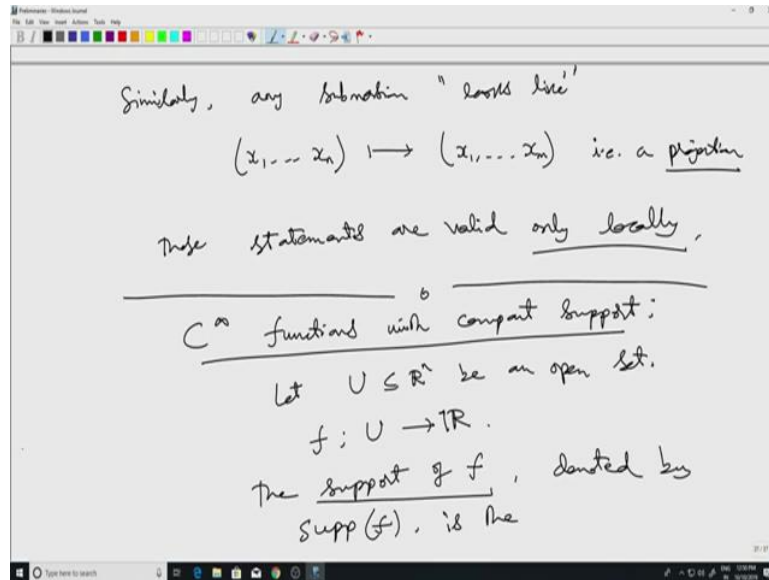 Preliminaries - Windows Journal
File Edit View Insert Actions Tools Help
Similarly, any submersion "looks like"
(x₁, ... xₙ) ⟼ (x₁, ... xₘ) i.e. a projection
These statements are valid only locally.
C^∞ functions with compact support:
Let U ⊆ ℝⁿ be an open set.
f : U → ℝ.
The support of f, denoted by
supp(f), is the
Type here to search